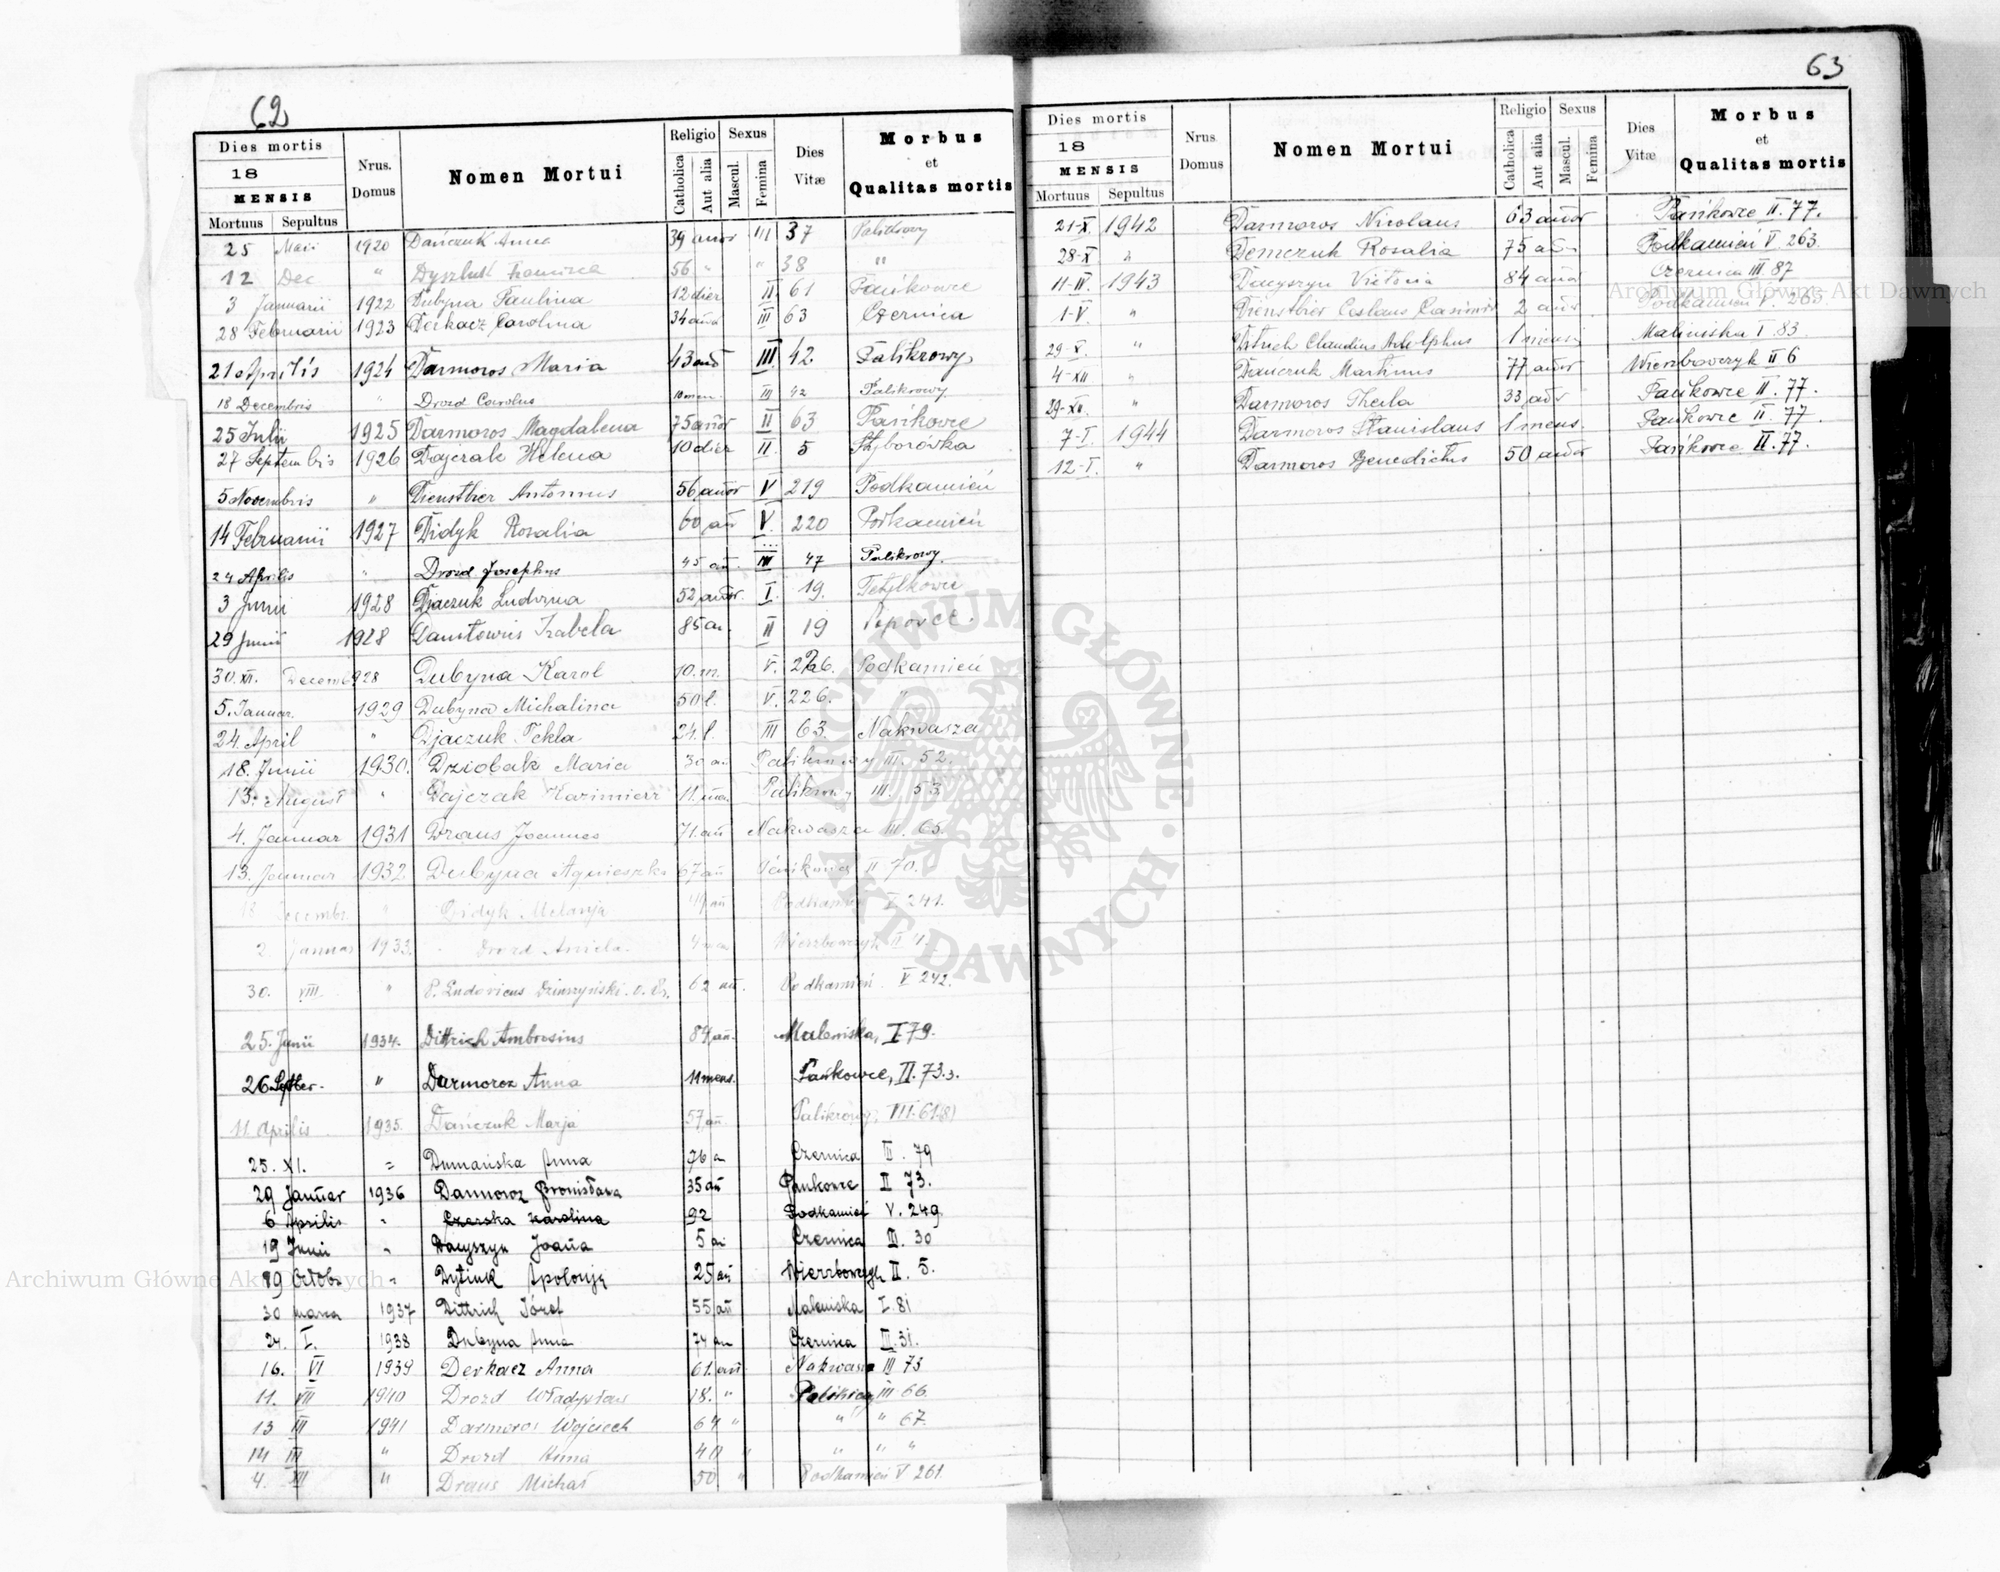 62
Dies mortis
18
MENSIS
Mortuus Sepultus
Nrus. Domus
Nomen Mortui
Religio
Catholica
Aut alia
Sexus
Mascul.
Femina
Dies Vitæ
Morbus et Qualitas mortis
25 Maii 1920 Dańczuk Anna 39 annor III 37 Palikrowy
12 Dec " 56 " " 38 "
3 Januarii 1922 Dubyna Paulina 12 dier II 61 Pańkowce
28 Februarii 1923 Derkacz Carolina 34 III 63 Czernica
21 Aprilis 1924 Darmoros Maria 43 III 42. Palikrowy
18 Decembris " Drozd Carolus 10 men. III 42 Palikrowy
25 Julii 1925 Darmoros Magdalena 75 annor II 63 Pańkowce
27 Septembis 1926 Dajczak Helena 10 dier II 5
5 Novembris " Diensthier Antonius 56 annor V 219 Podkamień
14 Februarii 1927 Didyk Rosalia 60 V. 220
24 Aprilis " Drozd Josephus 45 an. III 47 Palikrowy.
3 Junii 1928 Djaczuk Ludvina 52 annor. I. 19. Tetylkowce
29 Junii 1928 Izabela 85 an. II 19 Popowce.
30. XII. 1928 Dubyna Karol 10. m. V. 226. Podkamień
5. Januar. 1929 Dubyna Michalina 50 l. V. 226. "
24. April " Djaczuk Tekla 24. l. III 63. Nakwasza
18. Junii 1930. Dziobak Maria 30 an III. 52.
13. August " Dajczak Kazimierz 11. III. 53
4. Januar 1931 Draus Joannes 71. an Nakwasza III. 65.
13. Januar 1932 Dubyna Agnieszka 67 an II 70.
18 Decembr. " Didyk Melanja 49 an Podkamień V 241.
2. Januar 1933. Drozd Aniela. Wierzbowczyk II
30. VIII. " P. Ludovicus 62 an. Podkamień V 242.
25. Junii 1934. Dittrich Ambrosius 89 an. Maleniska, I 79.
26 Septber. " Darmoroz Anna 11 mens. Pańkowce, II. 73.
11. Aprilis 1935. Dańczuk Marja 57 an. Palikrowy,
25. XI. = Dumańska Anna 76 a Czernica III. 79
29 Januar 1936 Darmoroz Bronisława 35 an Pankowce II 73.
6 Aprilis " Czerska Karolina 92 Podkamień V. 249
19 Junii " Dacyszyn Joana 5 an Czernica III. 30
Octobr " Dytiuk Apolonja 25 an Wierzbowczyk II. 5.
30 marca 1937 Dittrich Józef 55 an Maleniska I. 81
24. I. 1938 Dubyna Anna 74 an Czernica III. 31.
16. VI 1939 Derkacz Anna 61. an Nakwasza III 73
11. VII 1940 Drozd Władysław 18. " III 66.
13 III 1941 Darmoros Wojciech 64 " " " 67.
14 III " Drozd Anna 40 " " " "
4. XII " Draus Michał 50 " Podkamień V 261.
63
Dies mortis
18
MENSIS
Mortuus Sepultus
Nrus. Domus
Nomen Mortui
Religio
Catholica
Aut alia
Sexus
Mascul.
Femina
Dies Vitæ
Morbus et Qualitas mortis
21-X. 1942 Darmoros Nicolaus 63 annor Pańkowce II. 77.
28-X " Demczuk Rosalia 75 Podkamień V. 263.
11-III. 1943 Dacyszyn Victoria 84 Czernica III 87
1-V. " Diensthier Ceslaus Casimir 2 Podkamień V.
29-X. " Ditrich Claudius Adolphus 1 mensis Maliniska I 83.
4-XII " Dańczuk Martinus 77 annor Wierzbowczyk II 6
29-XII. " Darmoros Thecla 33 Pańkowce II. 77.
7-I. 1944 Darmoros Stanislaus 1 mens. Pańkowce II. 77.
12-I. " Darmoros Benedictus 50 annor Pańkowce II. 77.
ARCHIWUM GŁÓWNE AKT DAWNYCH
Archiwum Główne Akt Dawnych
Archiwum Główne Akt Dawnych